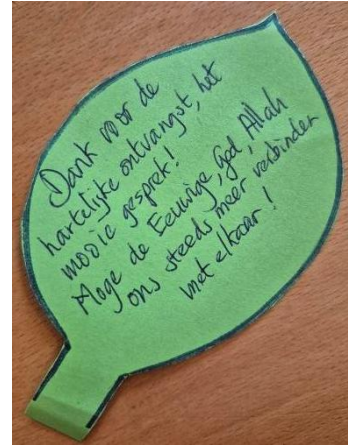 Dank voor de
hartelijke ontvangst, het
mooie gesprek!
Moge de Eeuwige, God, Allah
ons steeds meer verbinden
met elkaar!